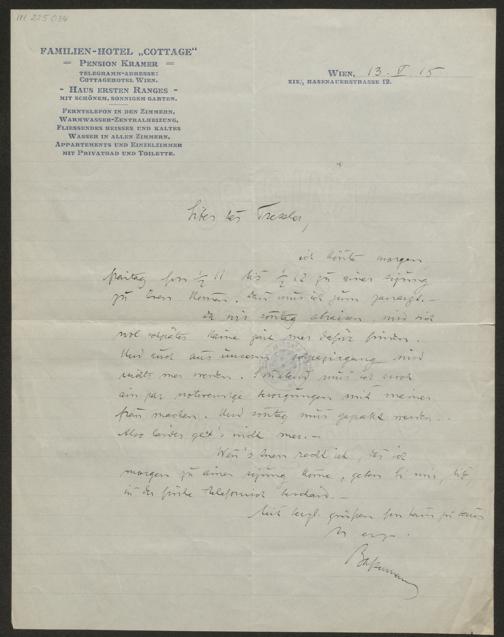 III 225 034
FAMILIEN-HOTEL „COTTAGE"
= PENSION KRAMER =
TELEGRAMM-ADRESSE:
COTTAGEHOTEL WIEN.
- HAUS ERSTEN RANGES -
MIT SCHÖNEM, SONNIGEM GARTEN.
FERNTELEFON IN DEN ZIMMERN,
WARMWASSER-ZENTRALHEIZUNG,
FLIESSENDES HEISSES UND KALTES
WASSER IN ALLEN ZIMMERN,
APPARTEMENTS UND EINZELZIMMER
MIT PRIVATBAD UND TOILETTE.
WIEN, 13. V. 15
XIX., HASENAUERSTRASSE 12.
ich könte morgen
freitag fon ½ 11 bis ½ 12 zu einer sizung
zu Inen komen. Dan mus ich zum
Da wir sontag abreisen, wird sich
wol keine zeit mer dafür finden.
Und auch aus unserem wird
nichts mer werden. mus ich noch
ein par notwendige besorgungen mit meiner
frau machen. Und sontag mus gepakt werden.
Also leider get's nicht mer.
Wen's Inen recht ist, das ich
morgen zu einer sizung kome, geben Si mir, bite,
in der früe telefonisch bescheid.
Mit herzl. grüßen fon haus zu haus
Ir